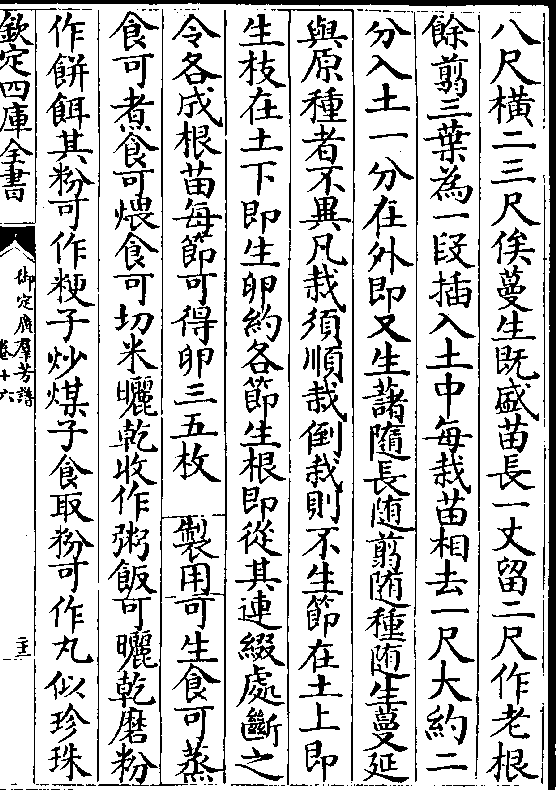 八尺橫二三尺俟蔓生既盛苗長一丈留二尺作老根
餘剪三葉為一段插入土中每栽苗相去一尺大約二
分入土一分在外即又生藷隨長隨剪隨種隨生蔓延
與原種者不異凡栽須順栽倒栽則不生節在土上即
生枝在土下即生卵約各節生根即從其連綴處斷之
令各成根苗每節可得卵三五枚 製用可生食可蒸
食可煮食可煨食可切米曬乾收作粥飯可曬乾磨粉
作餅餌其粉可作粳子炒煠子食取粉可作丸似珍珠
欽定四庫全書
御定廣羣芳譜
卷十六